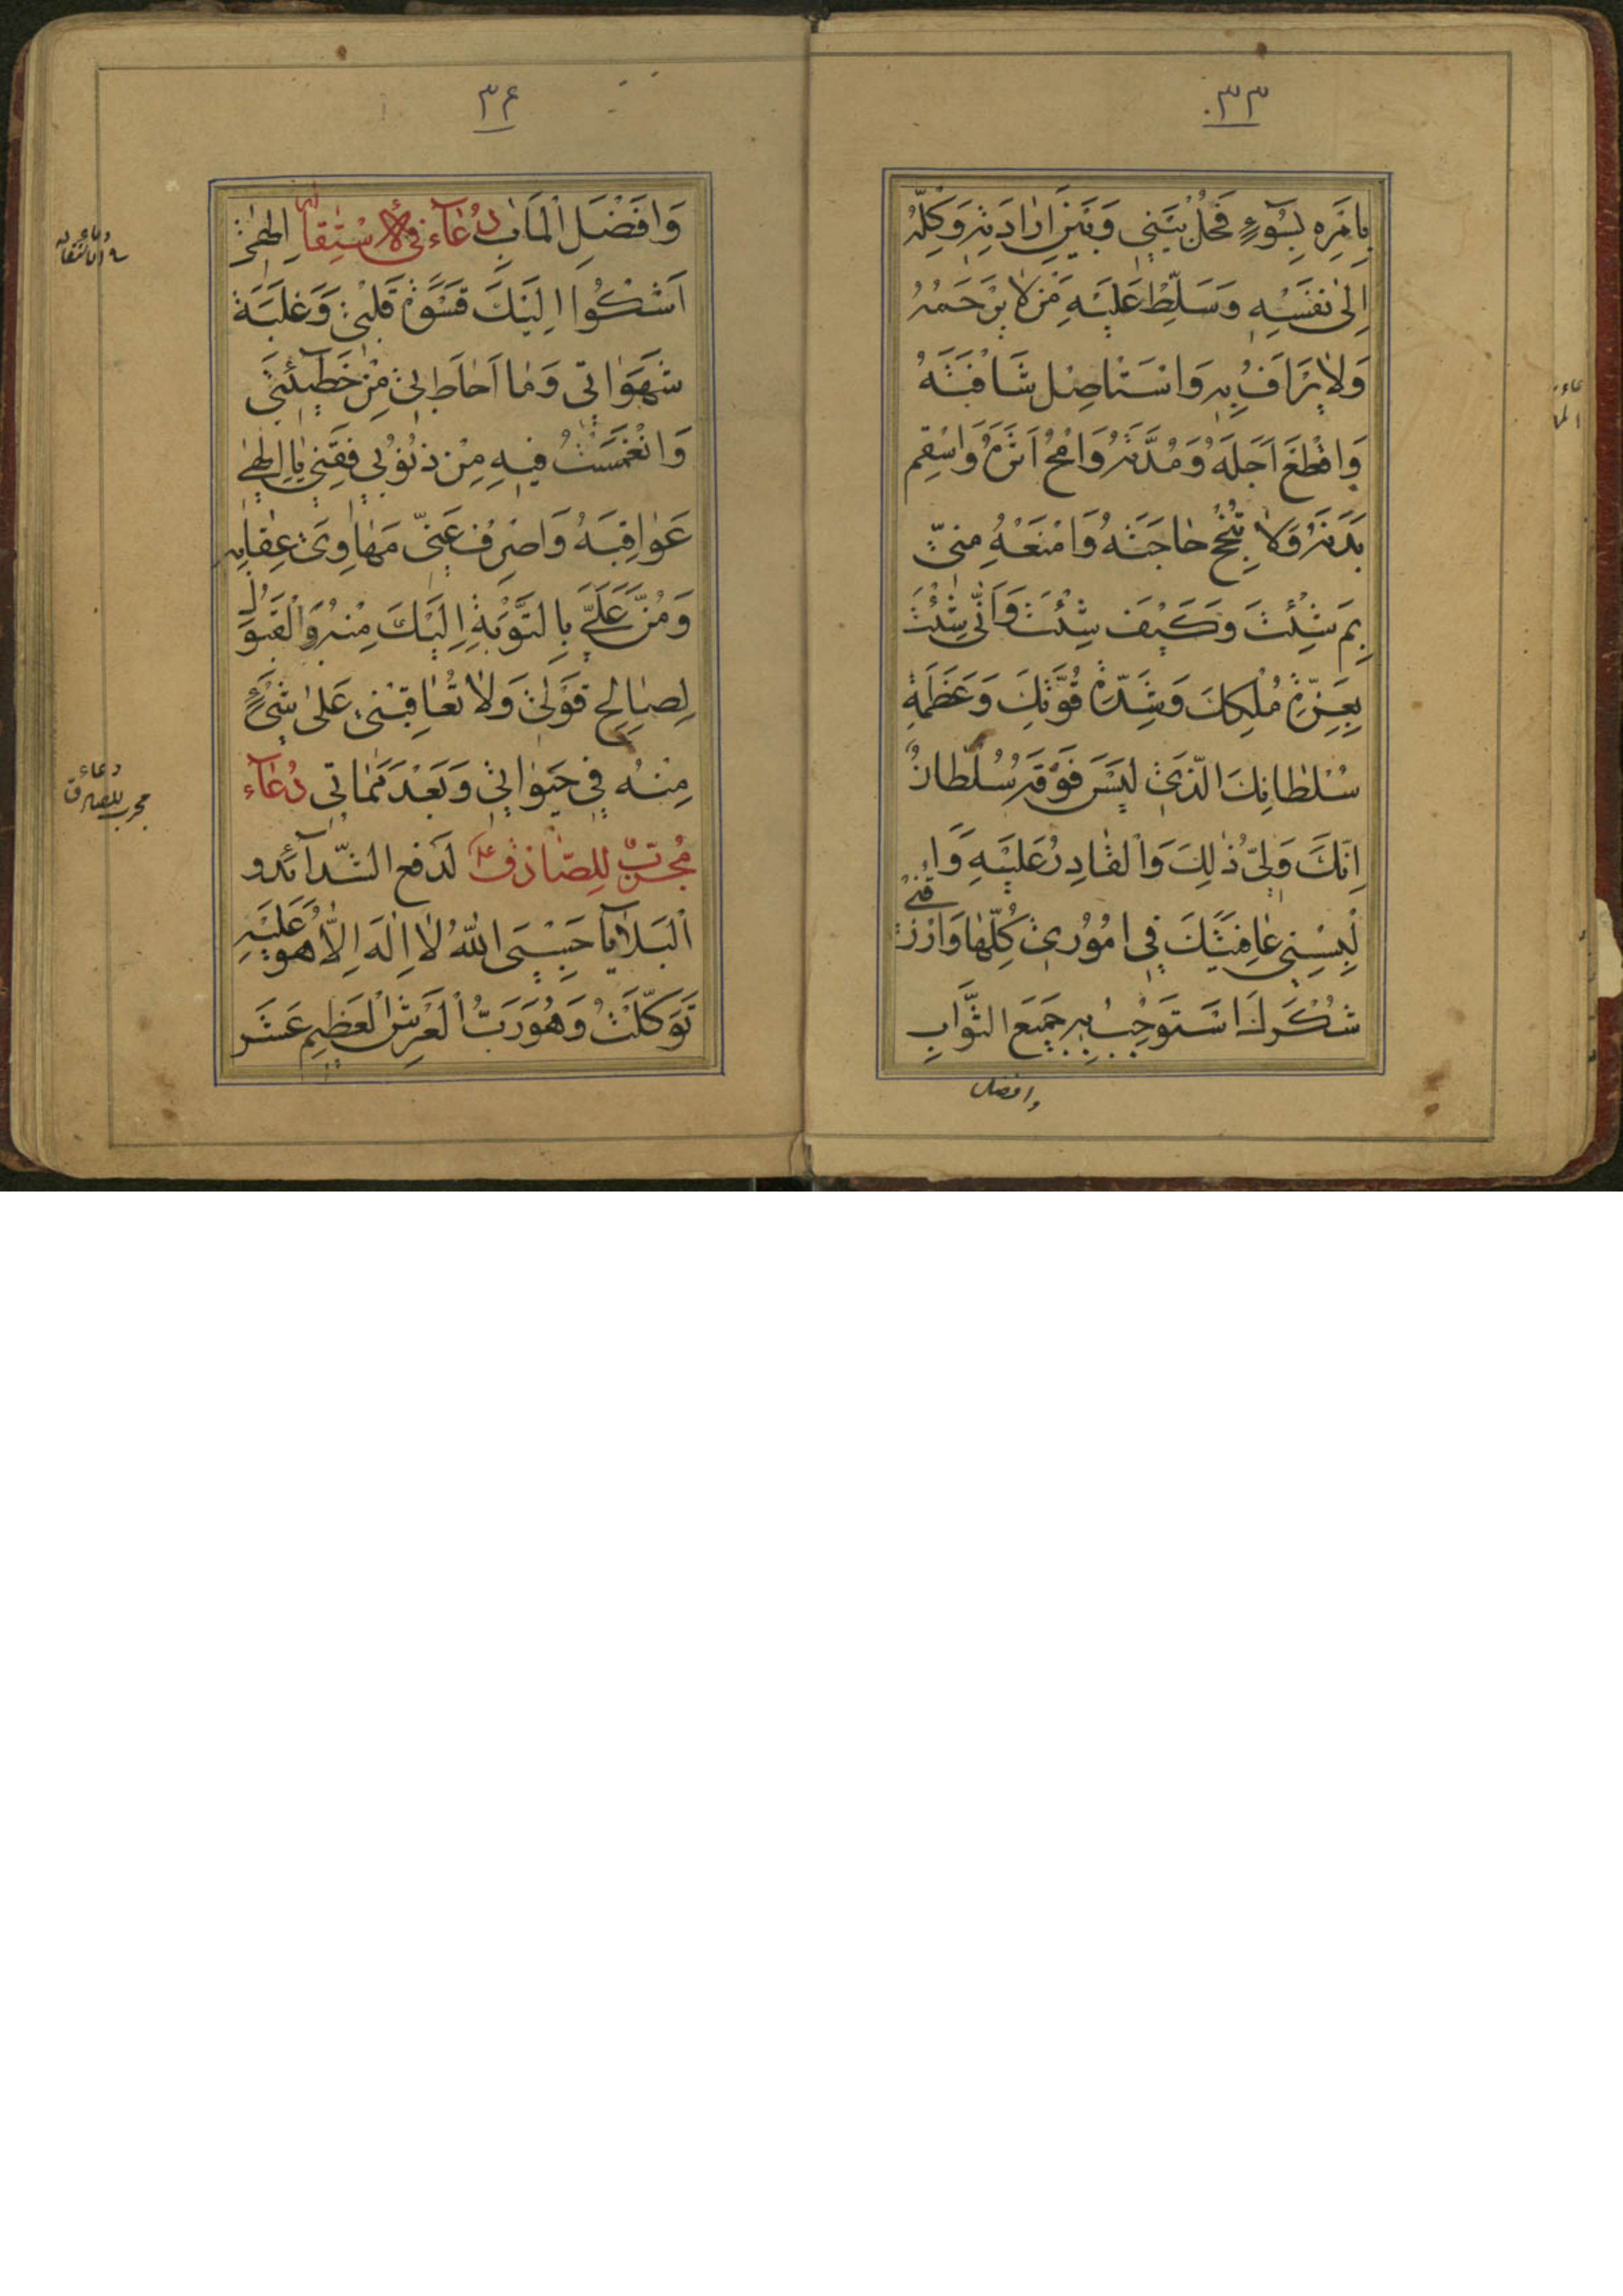 ٣٣
بِامْرِهِ بِسُوٓءٍ فَحُلْ بَيْنِي وَبَيْنَ اِرٰادَتِهِ وَكِلْهُ
اِلىٰ نَفْسِهِ وَسَلِّطْ عَلَيْهِ مَنْ لا يَرْحَمُهُ
وَلا يَرْاَفُ بِهِ وَاسْتَاصِلْ شَافَتَهُ
وَاقْطَعْ اَجَلَهُ وَمُدَّتَهُ وَامْحُ اَثَرَهُ وَاسْقِم
بَدَنَهُ وَلا تُنْجِحْ حٰاجَتَهُ وَامْنَعْهُ مِنّي
بِمَ شِئْتَ وَكَيْفَ شِئْتَ وَاَنّٰى شِئْتَ
بِعِزَّةِ مُلْكِكَ وَشِدَّةِ قُوَّتِكَ وَعَظَمَةِ
سُلْطٰانِكَ الَّذي لَيْسَ فَوْقَهُ سُلْطٰانٌ
اِنَّكَ وَلِيُّ ذٰلِكَ وَالْقٰادِرُ عَلَيْهِ وَا
لْبِسْنِي عٰافِيَتَكَ فِي اُمُوري كُلِّهٰا وَارْزُقْنِي
شُكْرَكَ اَسْتَوْجِبُ بِهِ جَميعَ الثَّوٰابِ
وافضل
٣٤
وَافْضَلَ الْمَاٰبِ دُعٰآء في الاسْتِقٰالة اِلٰهي
اَشْكُوا اِلَيْكَ قَسْوَةَ قَلْبي وَغَلَبَةَ
شَهَوٰاتي وَمٰا اَحٰاطَ بي مِنْ خَطٓيئَتي
وَانْغَمَسْتُ فيهِ مِنْ ذُنُوبي فَقِني يٰا اِلٰهي
عَوٰاقِبَهُ وَاصْرِفْ عَنّي مَهٰاوِيَ عِقٰابِهِ
وَمُنَّ عَلَيَّ بِالتَّوْبَةِ اِلَيْكَ مِنْهُ وَالْقَبُولِ
لِصٰالِحِ قَوْلي وَلا تُعٰاقِبْني عَلىٰ شَيْءٍ
مِنْهُ في حَيٰوتي وَبَعْدَ مَمٰاتي دُعٰآء
مُجَرَّبٌ لِلصّٰادِقِ ع لدَفع الشّدآئد و
الْبَلايٰا حَسْبِيَ اللّٰهُ لا اِلٰهَ اِلّا هُوَ عَلَيْهِ
تَوَكَّلْتُ وَهُوَ رَبُّ الْعَرْشِ الْعَظِيمِ عَشر
دعاء
مجرب للصادق